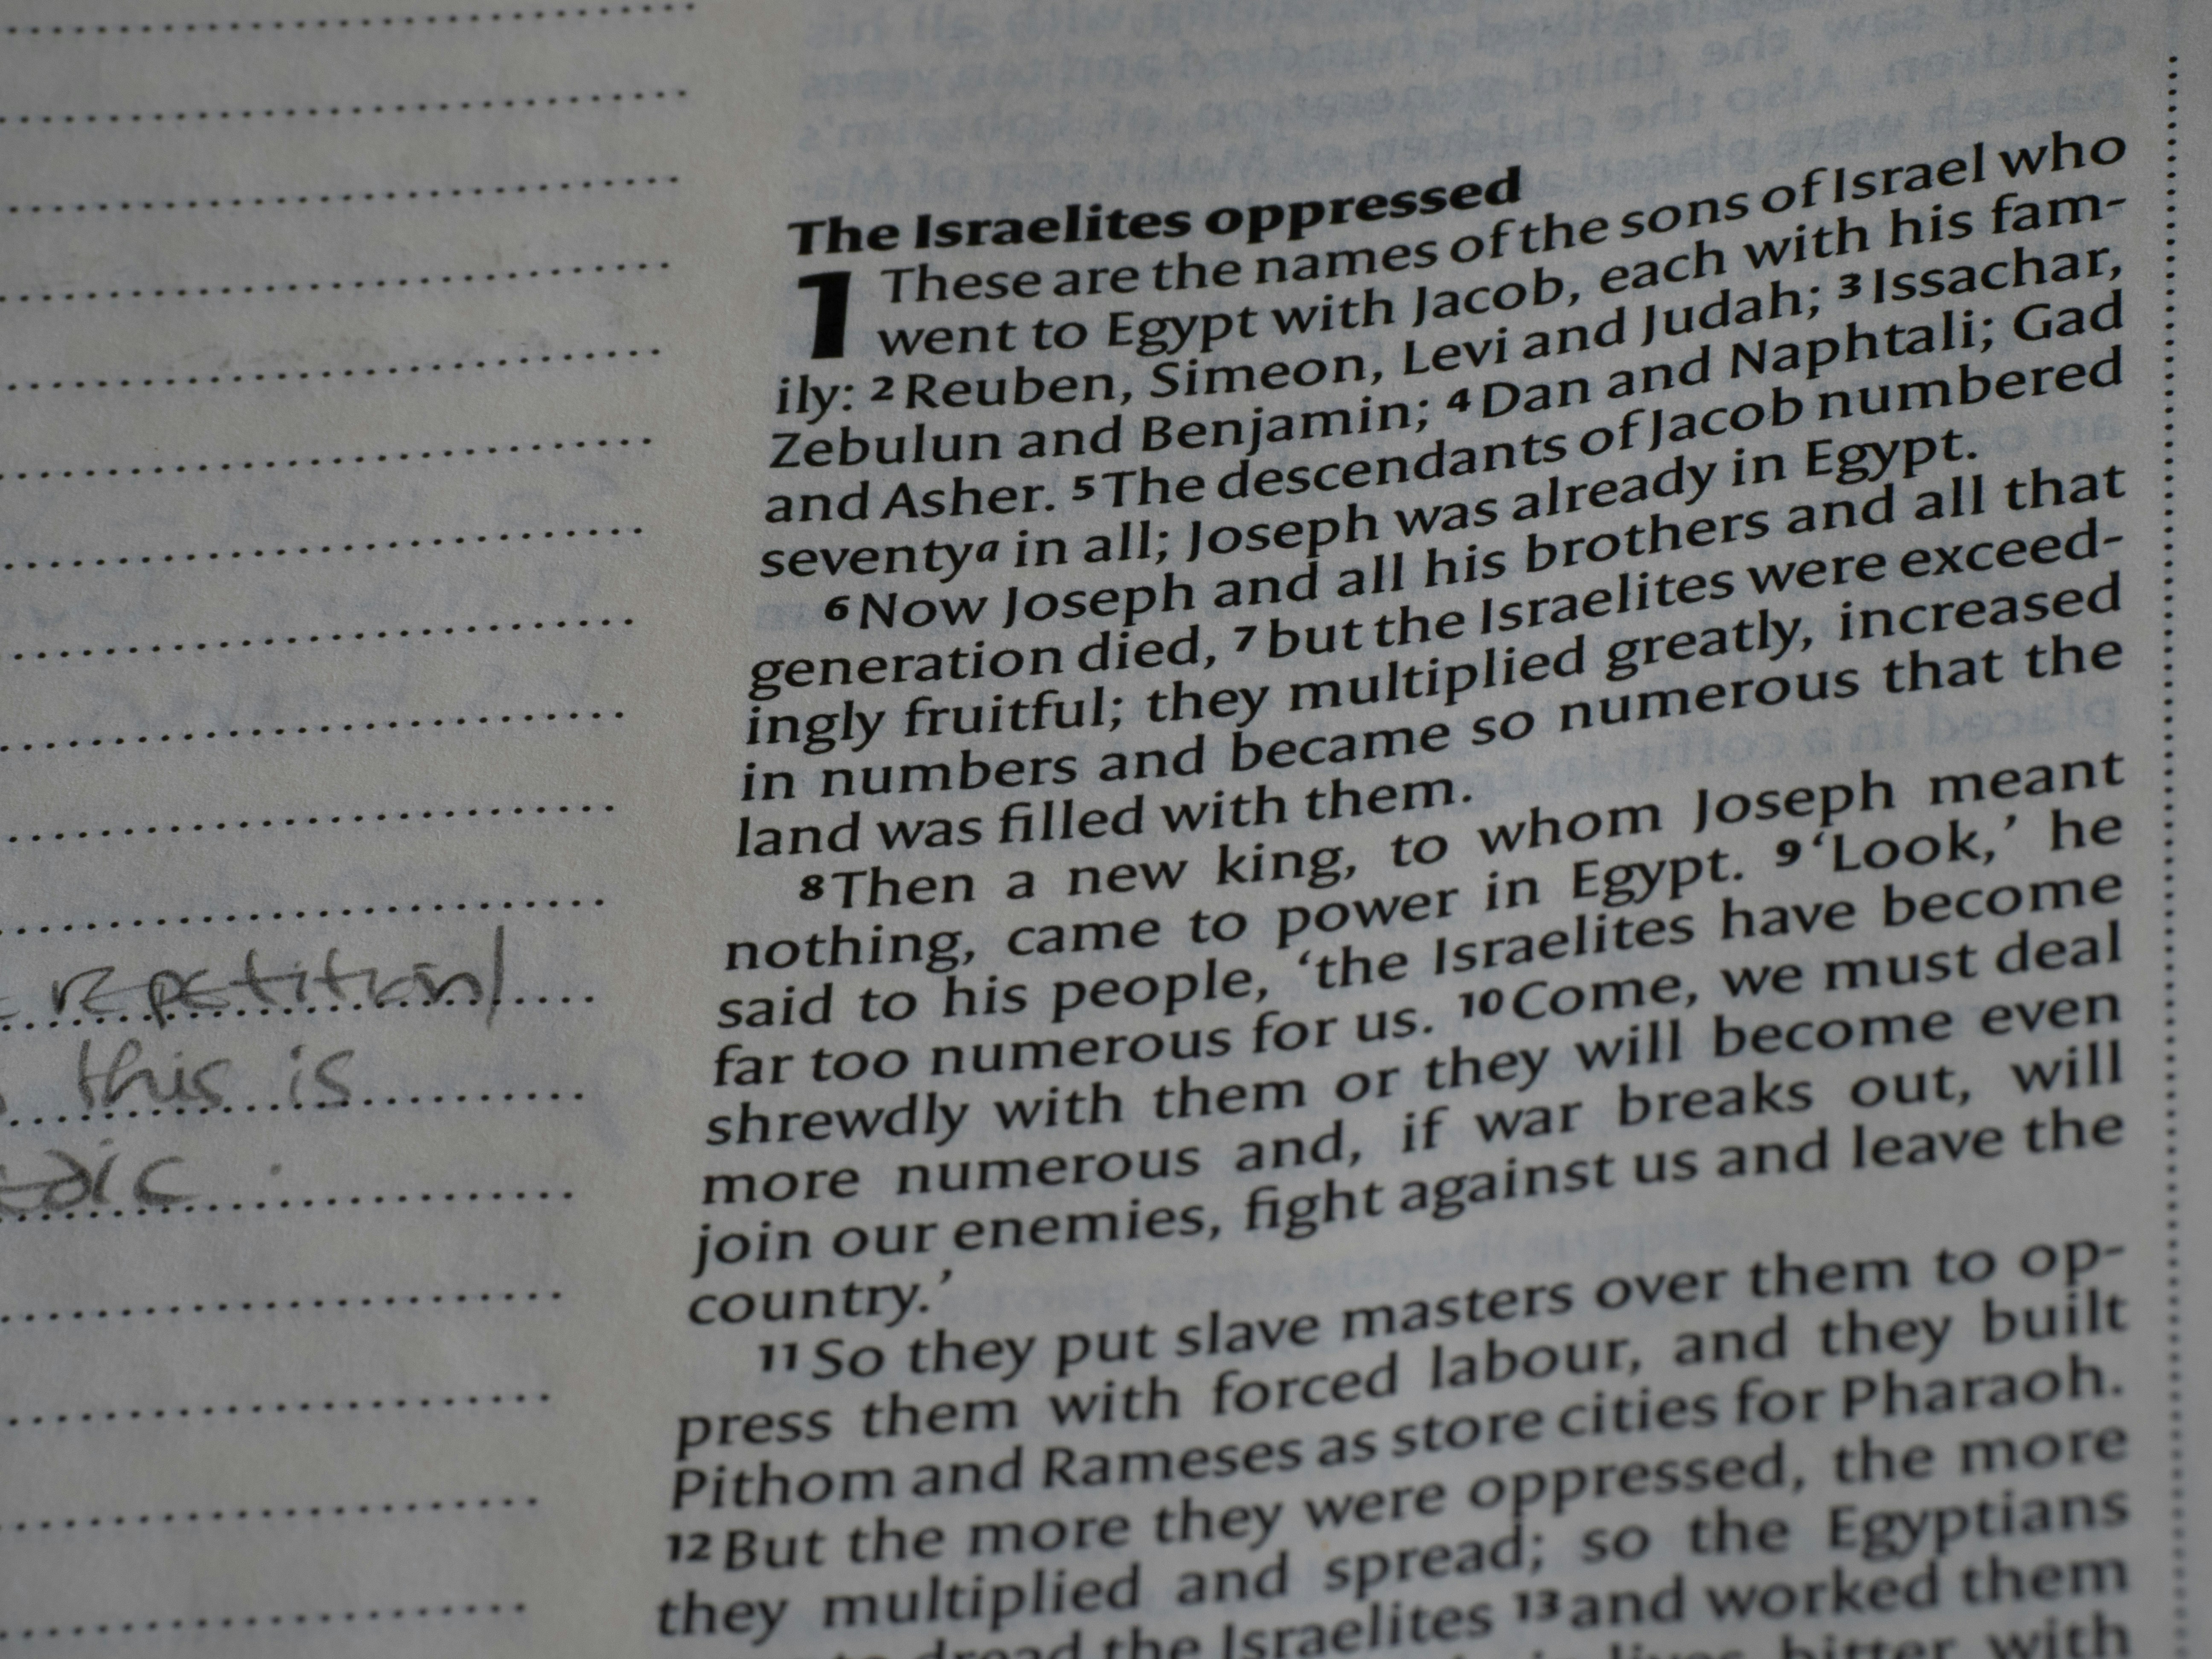 The Israelites oppressed
1 These are the names of the sons of Israel who
went to Egypt with Jacob, each with his fam-
ily: 2 Reuben, Simeon, Levi and Judah; 3 Issachar,
Zebulun and Benjamin; 4 Dan and Naphtali; Gad
and Asher. 5 The descendants of Jacob numbered
seventy a in all; Joseph was already in Egypt.
6 Now Joseph and all his brothers and all that
generation died, 7 but the Israelites were exceed-
ingly fruitful; they multiplied greatly, increased
in numbers and became so numerous that the
land was filled with them.
8 Then a new king, to whom Joseph meant
nothing, came to power in Egypt. 9 ‘Look,’ he
said to his people, ‘the Israelites have become
far too numerous for us. 10 Come, we must deal
shrewdly with them or they will become even
more numerous and, if war breaks out, will
join our enemies, fight against us and leave the
country.’
11 So they put slave masters over them to op-
press them with forced labour, and they built
Pithom and Rameses as store cities for Pharaoh.
12 But the more they were oppressed, the more
they multiplied and spread; so the Egyptians
to dread the Israelites 13 and worked them
lives bitter with
repetition
this is